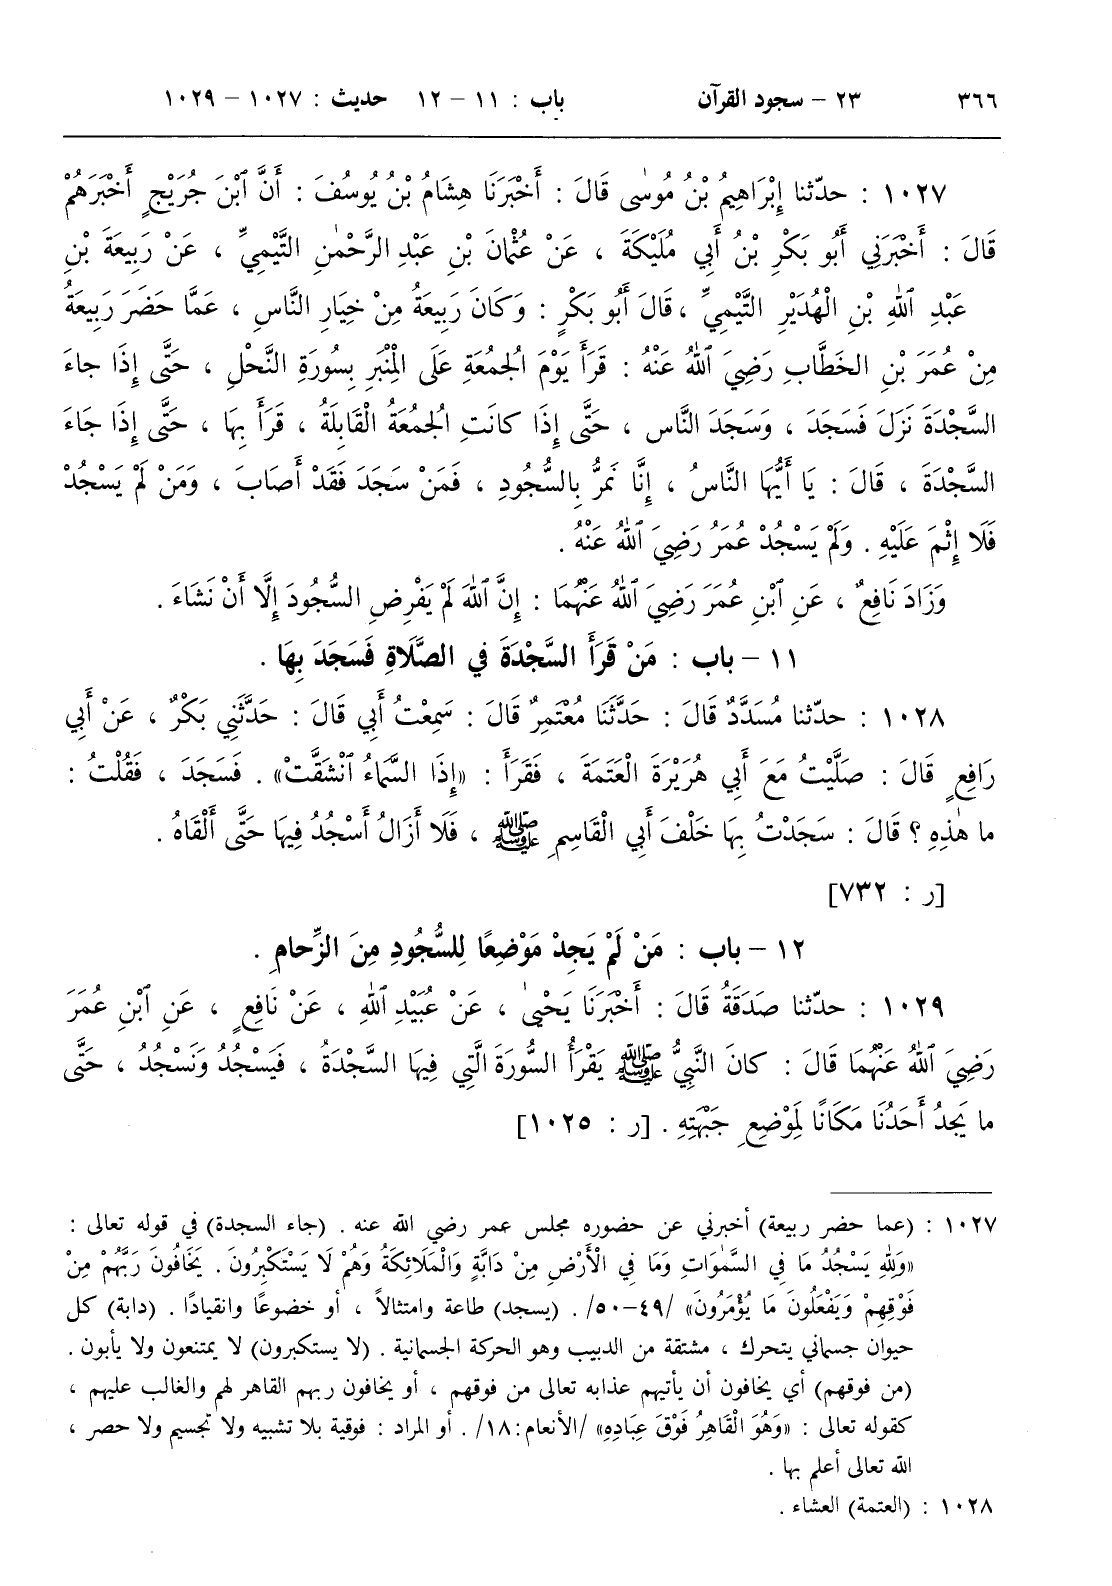 ٣٦٦ ٢٣ – سجود القرآن باب : ١١ – ١٢ حديث : ١٠٢٧ – ١٠٢٩
١٠٢٧ : حدّثنا إِبْرَاهِيمُ بْنُ مُوسٰى قَالَ : أَخْبَرَنَا هِشَامُ بْنُ يُوسُفَ : أَنَّ ٱبْنَ جُرَيْجٍ أَخْبَرَهُمْ
قَالَ : أَخْبَرَنِي أَبُو بَكْرِ بْنُ أَبِي مُلَيْكَةَ ، عَنْ عُثْمَانَ بْنِ عَبْدِ الرَّحْمٰنِ التَّيْمِيِّ ، عَنْ رَبِيعَةَ بْنِ
عَبْدِ ٱللهِ بْنِ الْهُدَيْرِ التَّيْمِيِّ ، قَالَ أَبُو بَكْرٍ : وَكَانَ رَبِيعَةُ مِنْ خِيَارِ النَّاسِ ، عَمَّا حَضَرَ رَبِيعَةُ
مِنْ عُمَرَ بْنِ الخَطَّابِ رَضِيَ ٱللهُ عَنْهُ : قَرَأَ يَوْمَ الجُمعَةِ عَلَى الْمِنْبَرِ بِسُورَةِ النَّحْلِ ، حَتَّى إِذَا جاءَ
السَّجْدَةَ نَزَلَ فَسَجَدَ ، وَسَجَدَ النَّاس ، حَتَّى إِذَا كانَتِ الجُمعَةُ الْقَابِلَةُ ، قَرَأَ بِهَا ، حَتَّى إِذَا جَاءَ
السَّجْدَةَ ، قَالَ : يَا أَيُّهَا النَّاسُ ، إِنَّا نَمُرُّ بِالسُّجُودِ ، فَمَنْ سَجَدَ فَقَدْ أَصَابَ ، وَمَنْ لَمْ يَسْجُدْ
فَلَا إِثْمَ عَلَيْهِ . وَلَمْ يَسْجُدْ عُمَرُ رَضِيَ ٱللهُ عَنْهُ .
وَزَادَ نَافِعٌ ، عَنِ ٱبْنِ عُمَرَ رَضِيَ ٱللهُ عَنْهُمَا : إِنَّ ٱللهَ لَمْ يَفْرِضِ السُّجُودَ إِلَّا أَنْ نَشَاءَ .
١١ – باب : مَنْ قَرَأَ السَّجْدَةَ في الصَّلَاةِ فَسَجَدَ بِهَا .
١٠٢٨ : حدّثنا مُسَدَّدٌ قَالَ : حَدَّثَنَا مُعْتَمِرٌ قَالَ : سَمِعْتُ أَبِي قَالَ : حَدَّثَنِي بَكْرٌ ، عَنْ أَبِي
رَافِعٍ قَالَ : صَلَّيْتُ مَعَ أَبِي هُرَيْرَةَ الْعَتَمَةَ ، فَقَرَأَ : «إِذَا السَّمَاءُ ٱنْشَقَّتْ» . فَسَجَدَ ، فَقُلْتُ :
ما هٰذِهِ ؟ قَالَ : سَجَدْتُ بِهَا خَلْفَ أَبِي الْقَاسِمِ ﷺ ، فَلَا أَزَالُ أَسْجُدُ فِيهَا حَتَّى أَلْقَاهُ .
[ر : ٧٣٢]
١٢ – باب : مَنْ لَمْ يَجِدْ مَوْضِعًا لِلسُّجُودِ مِنَ الزِّحامِ .
١٠٢٩ : حدّثنا صَدَقَةُ قَالَ : أَخْبَرَنَا يَحْيىٰ ، عَنْ عُبَيْدِ ٱللهِ ، عَنْ نَافِعٍ ، عَنِ ٱبْنِ عُمَرَ
رَضِيَ ٱللهُ عَنْهُمَا قَالَ : كانَ النَّبِيُّ ﷺ يَقْرَأُ السُّورَةَ الَّتِي فِيهَا السَّجْدَةُ ، فَيَسْجُدُ وَنَسْجُدُ ، حَتَّى
ما يَجِدُ أَحَدُنَا مَكَانًا لِمَوْضِعِ جَبْهَتِهِ . [ر : ١٠٢٥]
١٠٢٧ : (عما حضر ربيعة) أخبرني عن حضوره مجلس عمر رضي الله عنه . (جاء السجدة) في قوله تعالى :
«وَلِلّٰهِ يَسْجُدُ مَا فِي السَّمٰوَاتِ وَمَا فِي الْأَرْضِ مِنْ دَابَّةٍ وَالْمَلَائِكَةُ وَهُمْ لَا يَسْتَكْبِرُونَ . يَخَافُونَ رَبَّهُمْ مِنْ
فَوْقِهِمْ وَيَفْعَلُونَ مَا يُؤْمَرُونَ» /٤٩–٥٠/ . (يسجد) طاعة وامتثالاً ، أو خضوعًا وانقيادًا . (دابة) كل
حيوان جسماني يتحرك ، مشتقة من الدبيب وهو الحركة الجسمانية . (لا يستكبرون) لا يمتنعون ولا يأبون .
(من فوقهم) أي يخافون أن يأتيهم عذابه تعالى من فوقهم ، أو يخافون ربهم القاهر لهم والغالب عليهم ،
كقوله تعالى : «وَهُوَ الْقَاهِرُ فَوْقَ عِبَادِهِ» /الأنعام:١٨/ . أو المراد : فوقية بلا تشبيه ولا تجسيم ولا حصر ،
الله تعالى أعلم بها .
١٠٢٨ : (العتمة) العشاء .